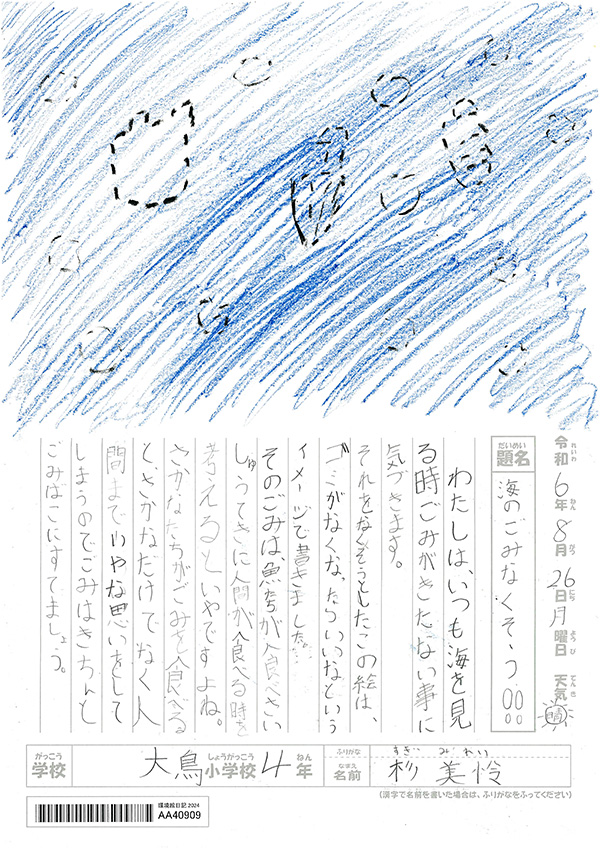 令和6年8月26日月曜日 天気 晴
れいわ ねん がつ にち ようび てんき
だいめい
題名
海のごみなくそう!!
わたしは、いつも海を見
る時ごみがきたない事に
気づきます。
それをなくそうとしたこの絵は、
ゴミがなくなったらいいなという
イメージで書きました。
そのごみは、魚たちが食べさい
しゅうてきに人間が食べる時を
考えるといやですよね。
さかなたちがごみを食べる
とさかなだけでなく人
間までいやな思いをして
しまうのでごみはきちんと
ごみばこにすてましょう。
がっこう しょうがっこう ねん
学校 大鳥小学校4年
ふりがな すぎ みれい
なまえ
名前 杉 美怜
(漢字で名前を書いた場合は、ふりがなをふってください)
環境絵日記2024
AA40909